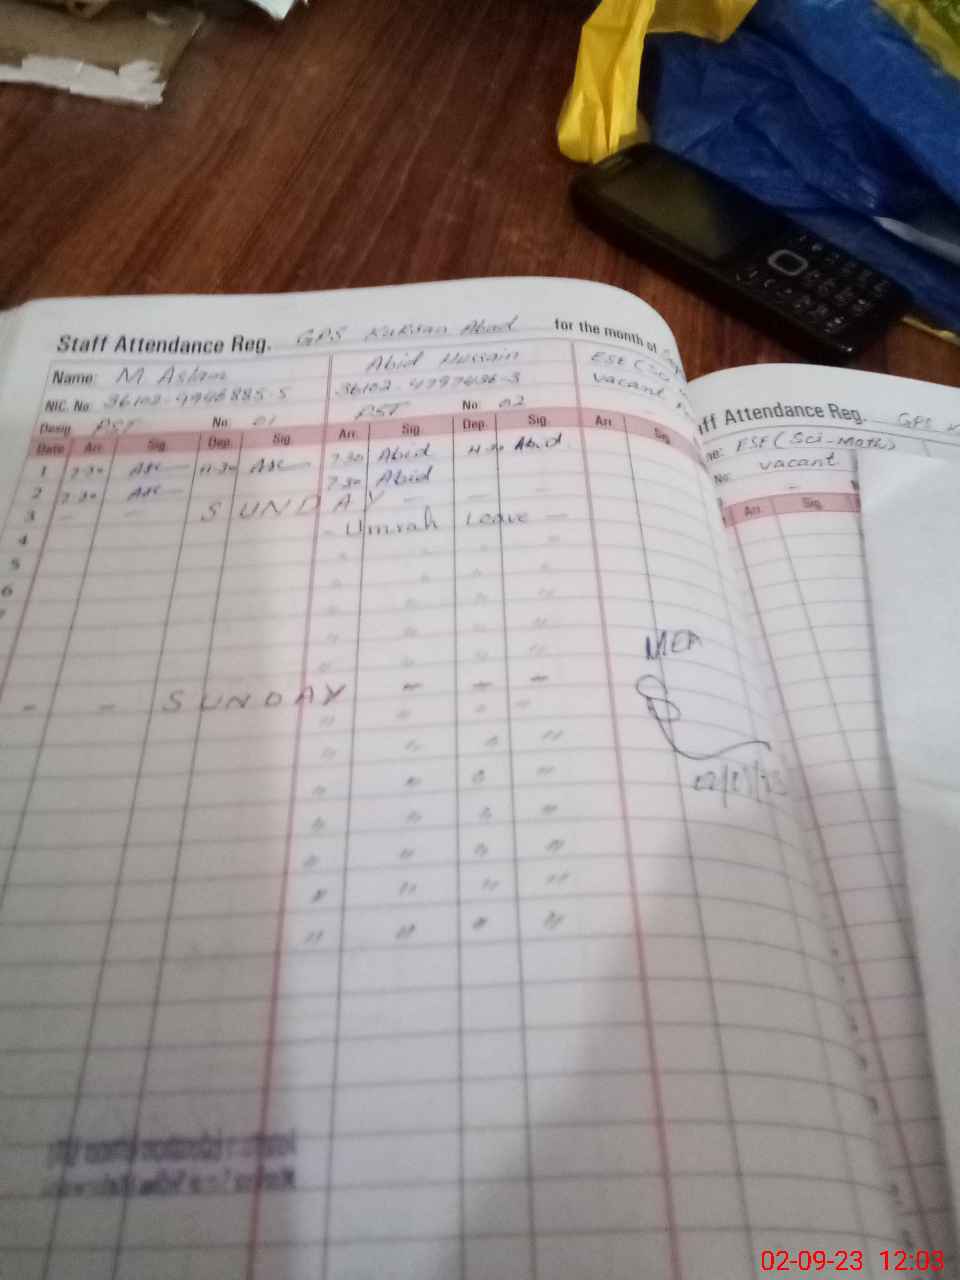 Staff Attendance Reg. GPS Abad for the month of
Name: M Aslam Abid Hussain ESE (Sci
NIC. No. vacant
Desig. PST No. 01 PST No. 02
Date Arr. Sig. Dep. Sig. Arr. Sig. Dep. Sig. Arr. Sig.
1 7-30 11-30 7-30 Abid 11-30 Abid
2 7-30 7-30 Abid
3 - - SUNDAY - - -
4 - Umrah Leave -
5 " " " "
6 " " " "
7 " " " "
" " " "
- - SUNDAY - - -
" " " "
" " " "
" " " "
" " " "
" " " "
" " " "
" " " "
MEA
ff Attendance Reg. GPS
me: ESE (Sci-Math)
No. vacant
-
Arr. Sig.
02-09-23 12:03